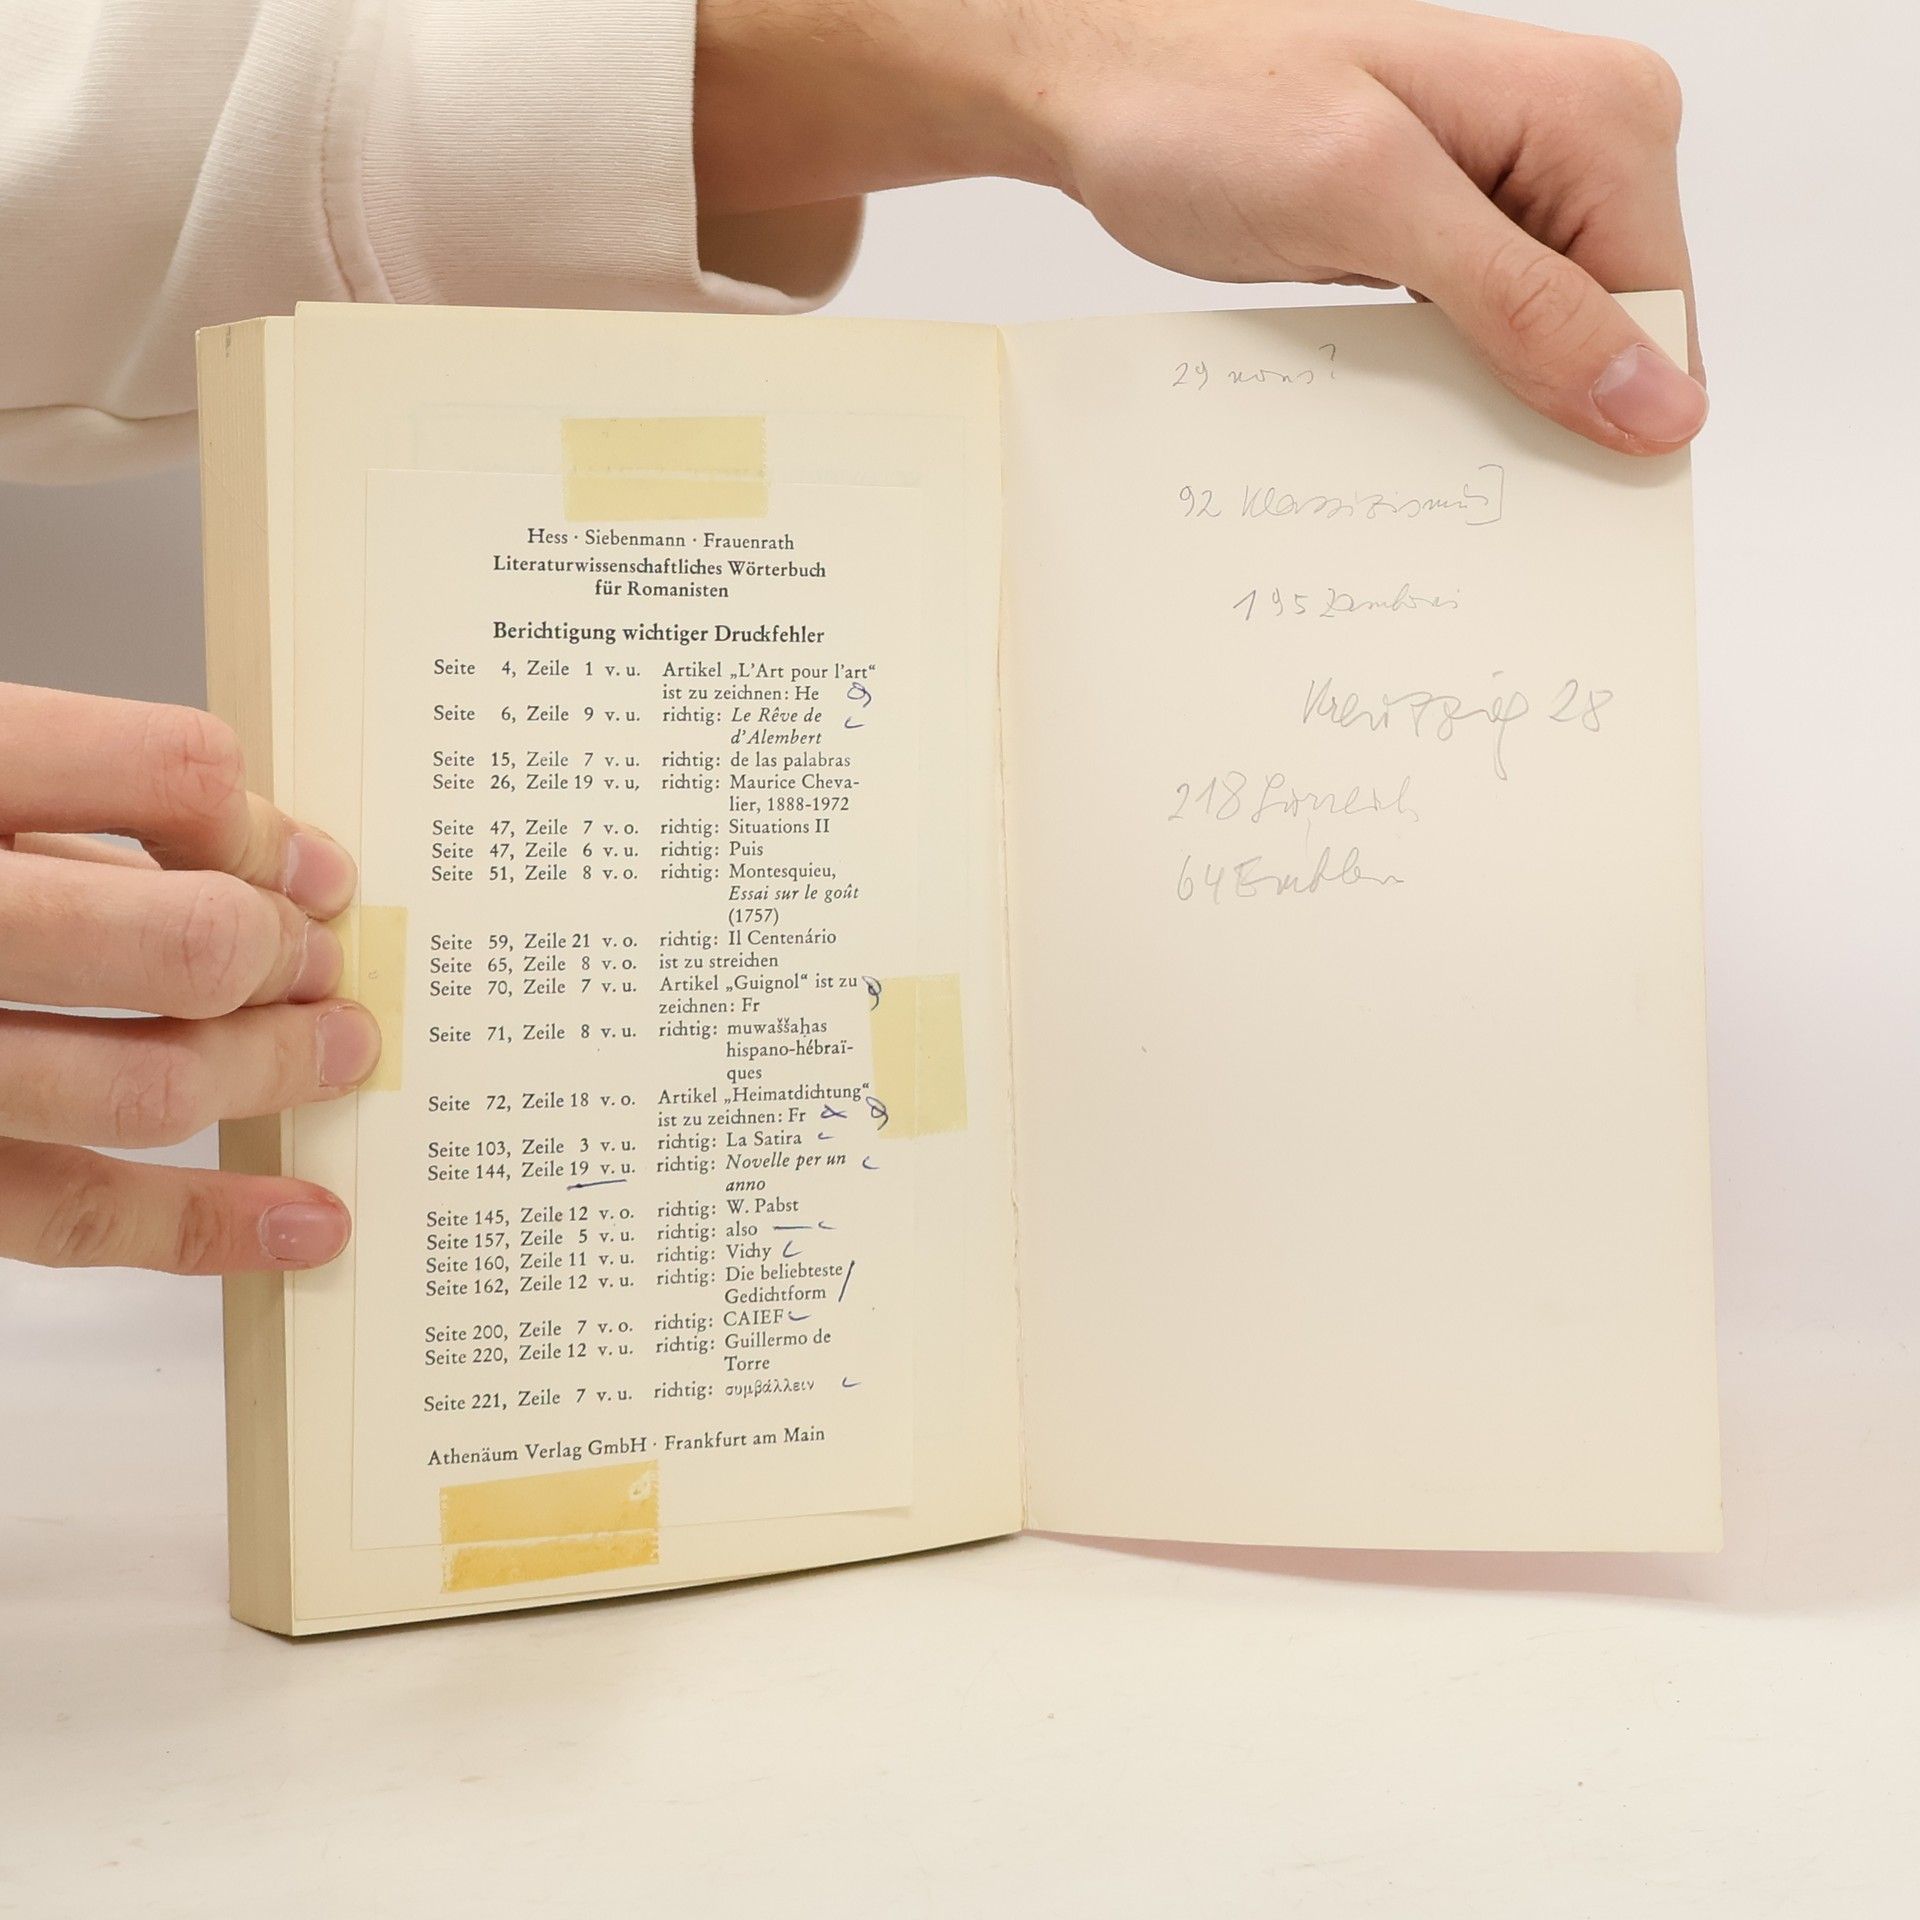 Hess · Siebenmann · Frauenrath
Literaturwissenschaftliches Wörterbuch
für Romanisten
Berichtigung wichtiger Druckfehler
Seite 4, Zeile 1 v. u. Artikel „L'Art pour l'art“
ist zu zeichnen: He
Seite 6, Zeile 9 v. u. richtig: Le Rêve de
d'Alembert
Seite 15, Zeile 7 v. u. richtig: de las palabras
Seite 26, Zeile 19 v. u, richtig: Maurice Cheva-
lier, 1888-1972
Seite 47, Zeile 7 v. o. richtig: Situations II
Seite 47, Zeile 6 v. u. richtig: Puis
Seite 51, Zeile 8 v. o. richtig: Montesquieu,
Essai sur le goût
(1757)
Seite 59, Zeile 21 v. o. richtig: Il Centenário
Seite 65, Zeile 8 v. o. ist zu streichen
Seite 70, Zeile 7 v. u. Artikel „Guignol“ ist zu
zeichnen: Fr
Seite 71, Zeile 8 v. u. richtig: muwaššaḥas
hispano-hébraï-
ques
Seite 72, Zeile 18 v. o. Artikel „Heimatdichtung“
ist zu zeichnen: Fr
Seite 103, Zeile 3 v. u. richtig: La Satira
Seite 144, Zeile 19 v. u. richtig: Novelle per un
anno
Seite 145, Zeile 12 v. o. richtig: W. Pabst
Seite 157, Zeile 5 v. u. richtig: also
Seite 160, Zeile 11 v. u. richtig: Vichy
Seite 162, Zeile 12 v. u. richtig: Die beliebteste
Gedichtform
Seite 200, Zeile 7 v. o. richtig: CAIEF
Seite 220, Zeile 12 v. u. richtig: Guillermo de
Torre
Seite 221, Zeile 7 v. u. richtig: συμβάλλειν
Athenäum Verlag GmbH · Frankfurt am Main
29
92 Klassizismus]
195
28
218
64 Emblem